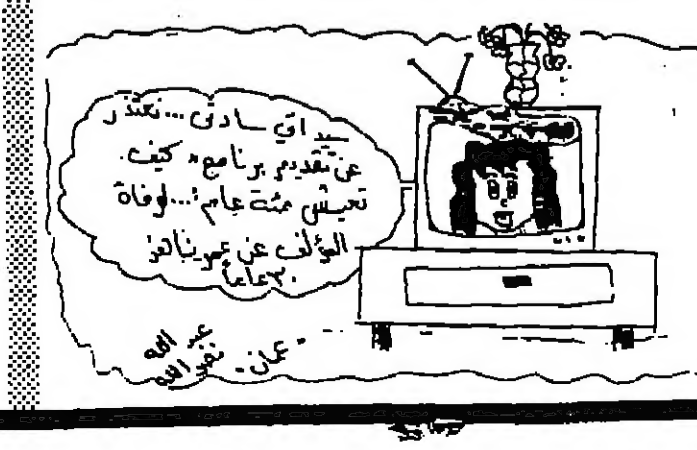 سيداتي سادتي... نعتذر
عن تقديم برنامج «كيف.
تعيش مئة عام!... لوفاة
المؤلف عن عمر يناهز
٣٠ عاماً
عبد الله
نصر الله
- عمان -